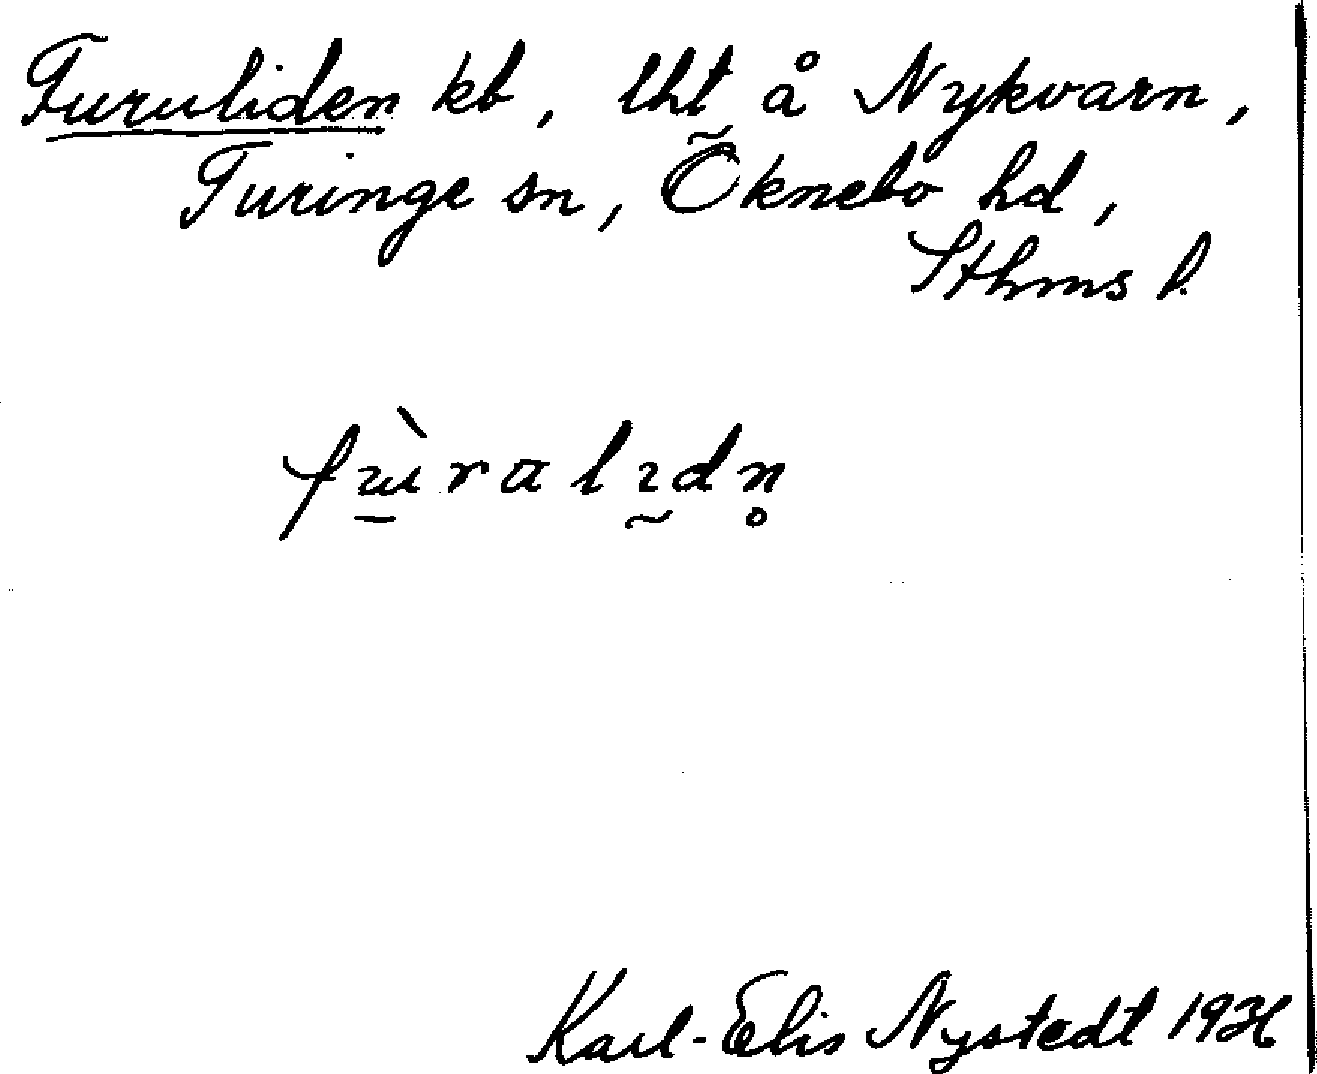 Furuliden kb, lht å Nykvarn,
Turinge sn, Öknebo hd,
Sthms l.
fɯ̀ralɪdn̥
Karl-Elis Nystedt 1936